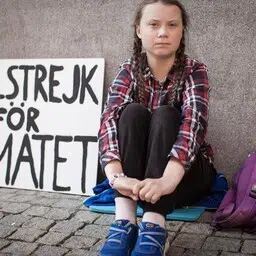 LSTREJK
FÖR
MATET